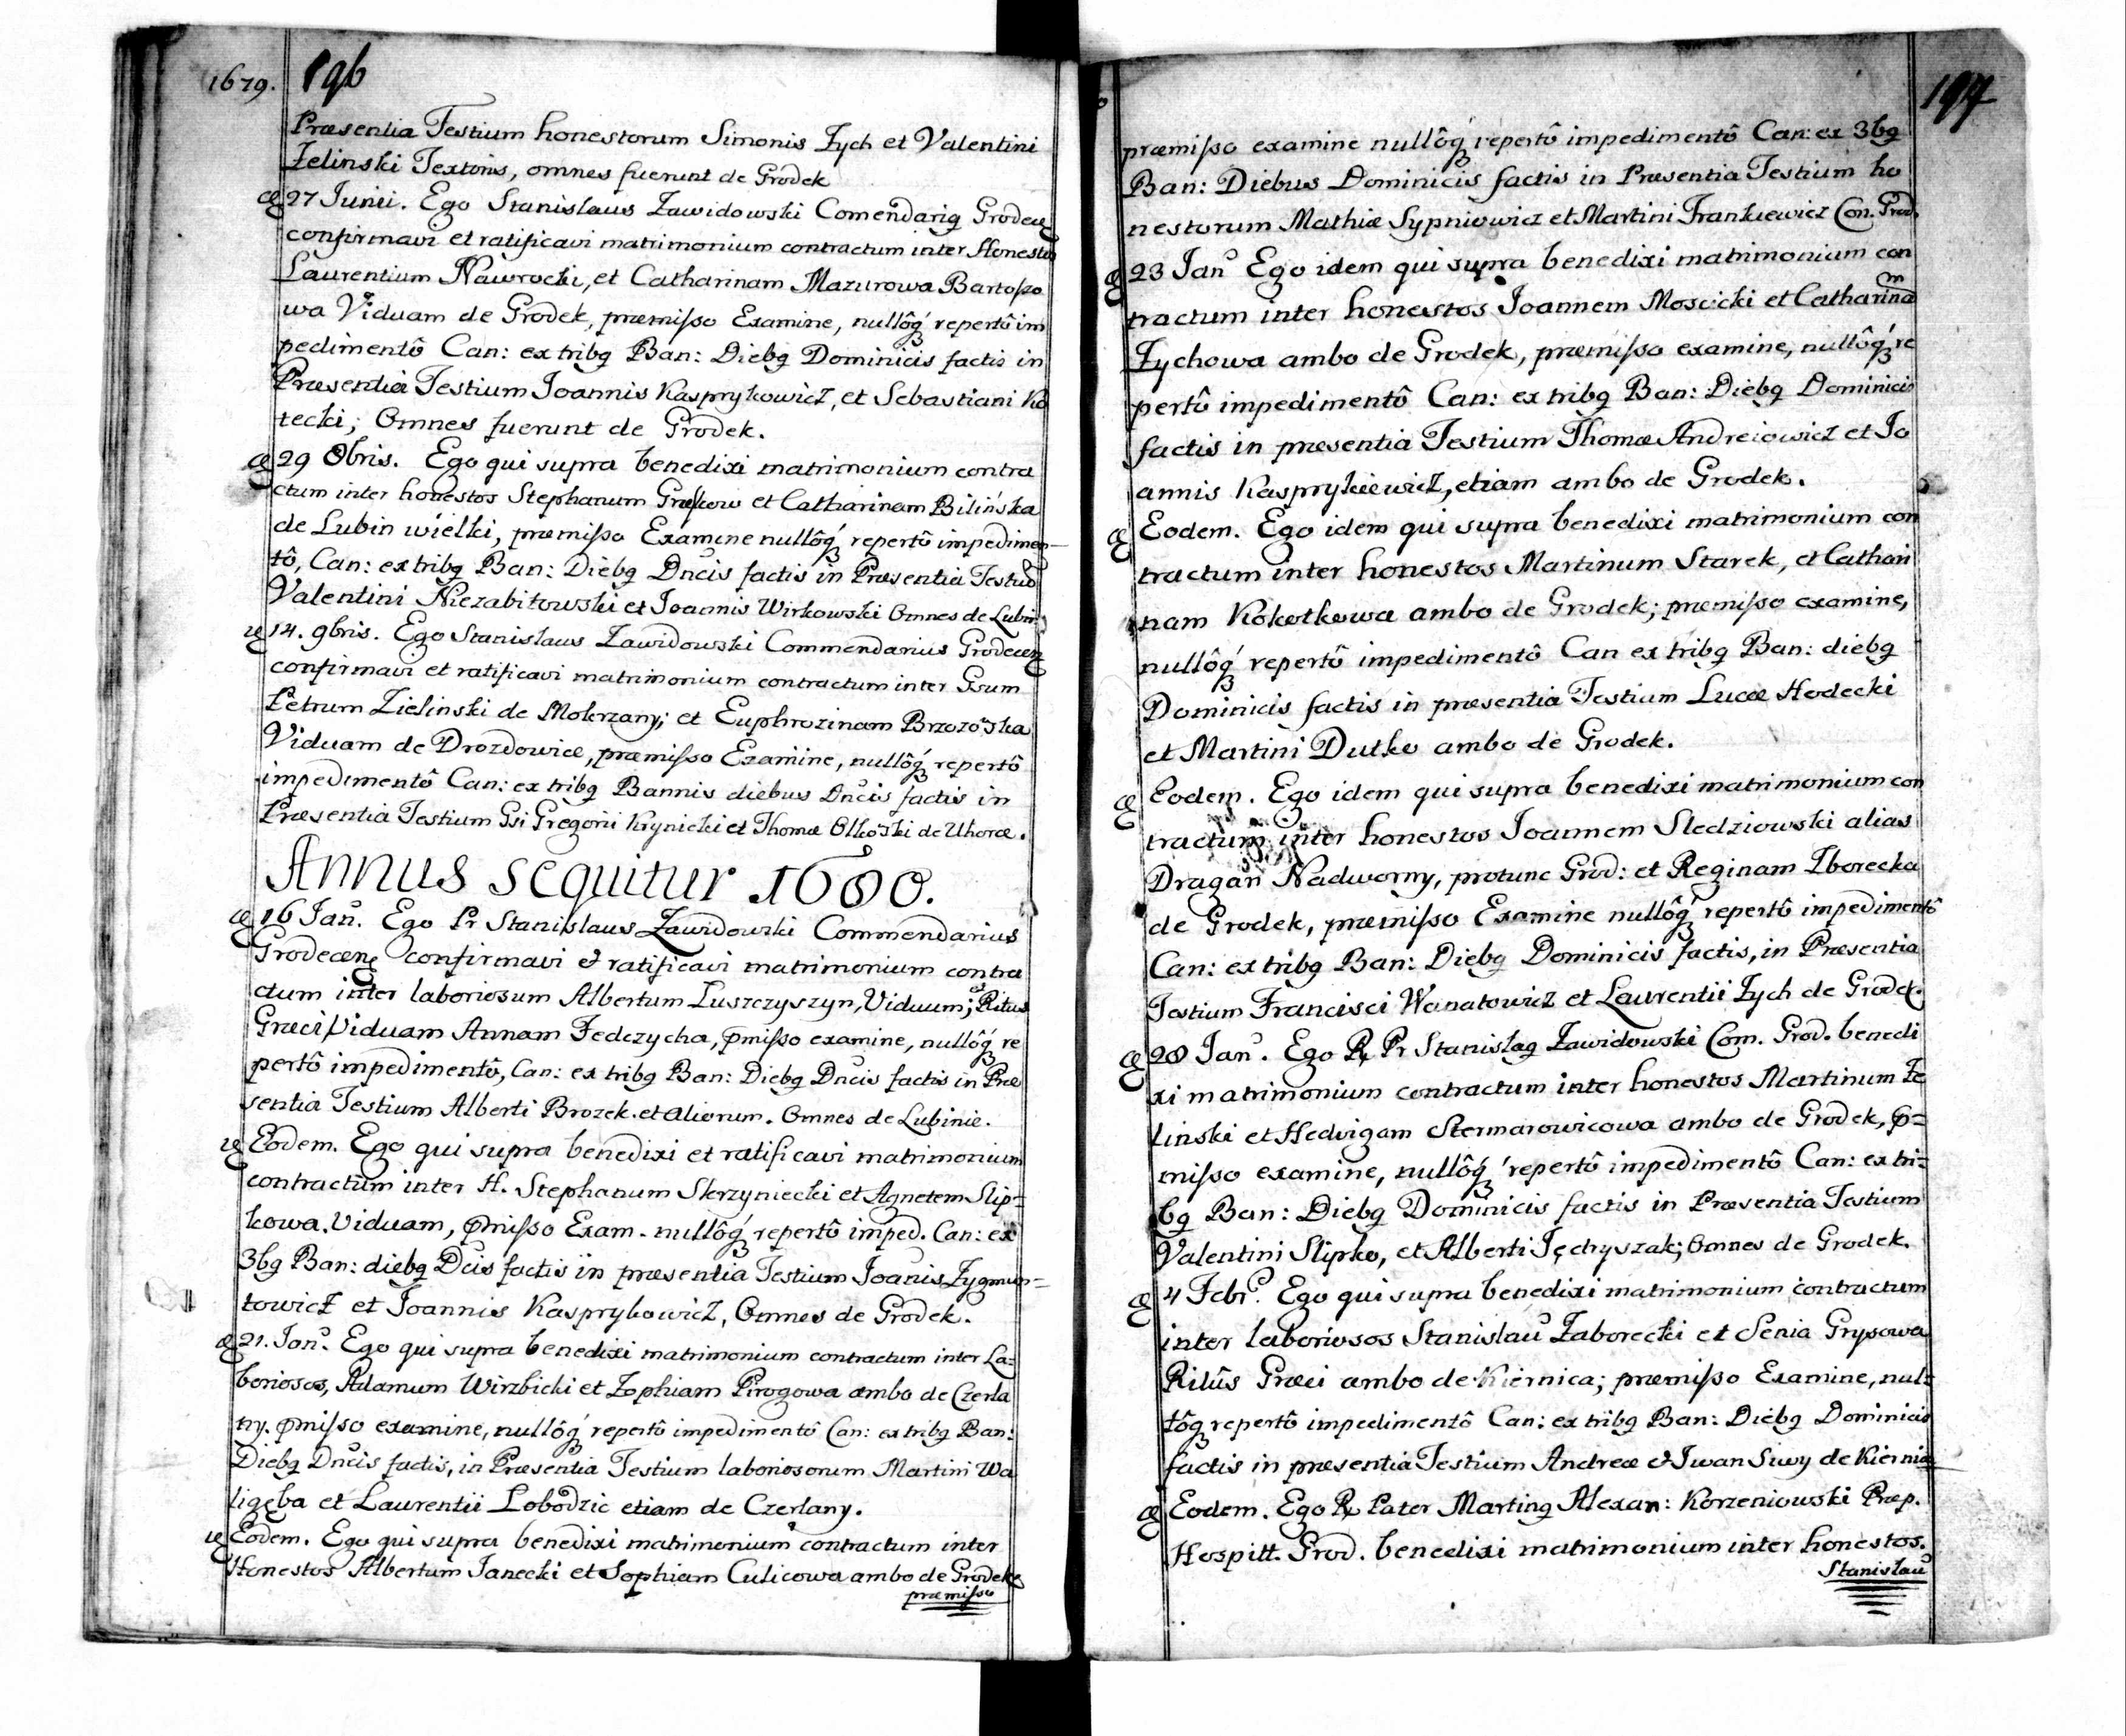 1679. 196
Præsentia Testium honestorum Simonis Zych et Valentini
Zelinski Textoris, omnes fuerunt de Grodek
27 Junii. Ego Stanislaus Zawidowski Comendarig Grodecen
confirmavi et ratificavi matrimonium contractum inter Honestos
Laurentium Nawrocki, et Catharinam Mazurowa Bartoszo
wa Viduam de Grodek, præmisso Examine, nullôq́ repertô im
pedimentô Can: ex tribg Ban: Diebg Dominicis factis in
Præsentia Testium Joannis Kasprykowicz, et Sebastiani Ko
tecki; Omnes fuerunt de Grodek.
29 8bris. Ego qui supra benedixi matrimonium contra
ctum inter honestos Stephanum et Catharinam Bilińska
de Lubin wielki, præmisso Examine nullôq́ repertô impedimen-
tô, Can: ex tribg Ban: Diebg Dncis factis in Præsentia Testiū
Valentini Niezabitowski et Joannis Wirkowski Omnes de Lubin
14. 9bris. Ego Stanislaus Zawidowski Commendarius Grodecen
confirmavi et ratificavi matrimonium contractum inter Gsum
Petrum Zielinski de Mokrzany; et Euphrozinam Brzozoska
Viduam de Drozdowice, præmisso Examine, nullôq́ repertô
impedimentô Can: ex tribg Bannis diebus Dncis factis in
Præsentia Testium Gsi Gregorii Krynicki et Thomæ Olkoski de Uhorce.
Annus sequitur 1680.
16 Jan. Ego Pr Stanislaus Zawidowski Commendarius
Grodecen confirmavi et ratificavi matrimonium contra
ctum inter laboriosum Albertum Luszczyszyn, Viduum; et Ritus
Græci Viduam Annam Fedczycha, pmisso examine, nullôq́ re
pertô impedimentô, Can: ex tribg Ban: Diebg Dncis factis in Præ
sentia Testium Alberti Brozek. et aliorum. Omnes de Lubinie.
Eodem. Ego qui supra benedixi et ratificavi matrimonium
contractum inter H. Stephanum Skrzyniecki et Agnetem Slip=
kowa. Viduam, pmisso Exam. nullôq́ repertô imped. Can: ex
3bg Ban: diebg Dcis factis in præsentia Testium Joanis Zygmun=
towicz et Joannis Kasprykowicz, Omnes de Grodek.
21. Jan. Ego qui supra benedixi matrimonium contractum inter La=
boriosos, Adamum Wirzbicki et Zophiam Pirogowa ambo de Czerla
ny. pmisso examine, nullôq́ repertô impedimentô Can: ex tribg Ban:
Diebg Dncis factis, in Præsentia Testium laboriosorum Martini Wa
ligęba et Laurentii Lobodzic etiam de Czerlany.
Eodem. Ego qui supra benedixi matrimonium contractum inter
Honestos Albertum Janecki et Sophiam Culicowa ambo de Grodek
præmisso
197
præmisso examine nullôq́ repertô impedimentô Can: ex 3bg
Ban: Diebus Dominicis factis in Præsentia Testium ho
nestorum Mathiæ Sypniowicz et Martini Frankiewicz Con. Grod.
23 Jan Ego idem qui supra benedixi matrimonium con
tractum inter honestos Joannem Moscicki et Catharinam
Zychowa ambo de Grodek, præmisso examine, nullôq́ re
pertô impedimentô Can: ex tribg Ban: Diebg Dominicis
factis in præsentia Testium Thomæ Andreiowicz et Jo
annis Kasprykiewicz, etiam ambo de Grodek.
Eodem. Ego idem qui supra benedixi matrimonium con
tractum inter honestos Martinum Starek, et Cathari
nam Kokotkowa ambo de Grodek; præmisso examine,
nullôq́ repertô impedimentô Can ex tribg Ban: diebg
Dominicis factis in præsentia Testium Lucæ Hodecki
et Martini Dutko ambo de Grodek.
Eodem. Ego idem qui supra benedixi matrimonium con
tractum inter honestos Joannem Sledziowski alias
Dragan Nadworny, protunc Grod: et Reginam Zborecka
de Grodek, præmisso Examine nullôq́ repertô impedimentô
Can: ex tribg Ban: Diebg Dominicis factis, in Præsentia
Testium Francisci Wanatowicz et Laurentii Zych de Grodek.
28 Jan. Ego R Pr Stanislag Zawidowski Com. Grod. benedi
xi matrimonium contractum inter honestos Martinum Ze
linski et Hedvigam Stermarowicowa ambo de Grodek, p=
misso examine, nullôq́ repertô impedimentô Can: ex tri=
bg Ban: Diebg Dominicis factis in Præsentia Testium
Valentini Slipko, et Alberti Jędryszak; Omnes de Grodek.
4 Febr. Ego qui supra benedixi matrimonium contractum
inter laboriosos Stanislaū Zaborecki et Senia Grysowa
Ritûs Græci ambo de Kiernica; præmisso Examine, nul=
lôq repertô impedimentô Can: ex tribg Ban: Diebg Dominicis
factis in præsentia Testium Andreæ et Iwan Siwy de Kiernica
Eodem. Ego R Pater Marting Alexan: Korzeniowski Præp.
Hospitt. Grod. benedixi matrimonium inter honestos.
Stanislaū